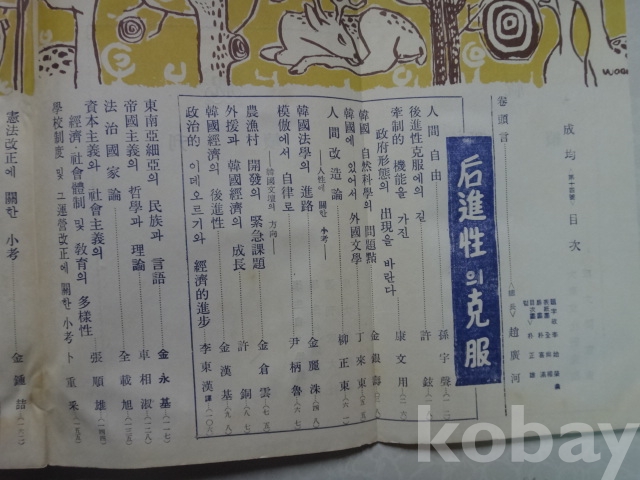 成均 第十四號 目次
卷頭言
(總長) 趙廣河
后進性의 克服
人間 自由 孫宇聲 (一二)
後進性克服에의 길 許鉉
牽制的 機能을 가진
政府形態의 出現을 바란다 康文用 (二六)
韓國 自然科學의 問題點 金銀濤
韓國에 있어서 外國文學 丁來東
人間改造論 柳正東 (六一)
—人性에 關한 小考—
韓國法學의 進路 金麗洙 (四八)
模倣에서 自律로 尹柄魯 (六七)
—韓國文壇의 方向—
農漁村 開發의 緊急課題 金倉雲 (七五)
外援과 韓國經濟의 成長 許銅 (八七)
韓國經濟의 後進性 金漢基 (九八)
政治的 이데오르기와 經濟的進步 李東漢 譯 (一〇八)
東南亞細亞의 民族과 言語 金永基 (一一七)
帝國主義의 哲學과 理論 車相淑
法治國家論 全載旭 (一三五)
資本主義와 社會主義의 張順雄 (一四四)
經濟·社會體制 및 敎育의 多樣性
學校制度 및 그 運營改正에 關한 小考 卜重采 (一五五)
憲法改正에 關한 小考 金鍾喆
WOOC
kobay